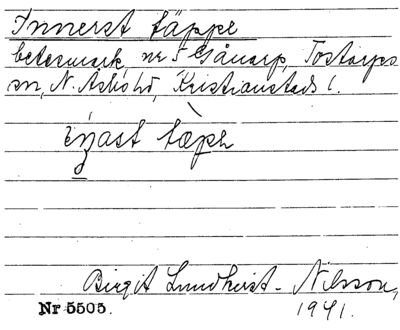 Innerst täppe
betesmark, nr 5 Gånarp, Tostarps
sn, N. Åsbo hd, Kristianstads l.
tæpe
Birgit Lundkvist-Nilsson,
Nr 5503. 1941.